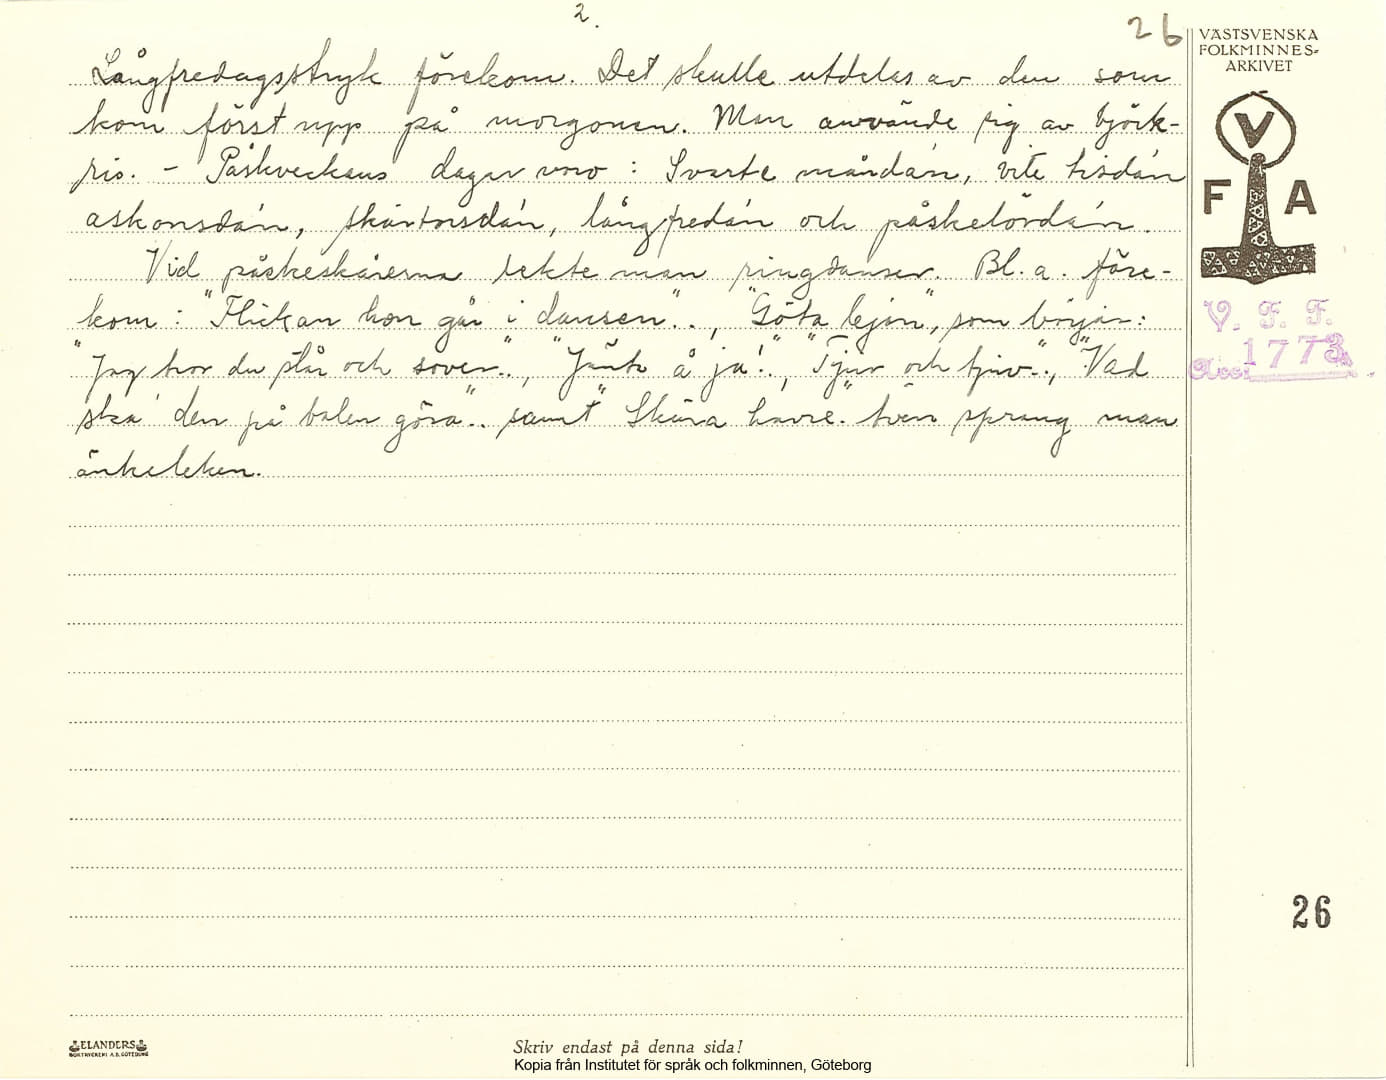 2.
26
Långfredagsstryk förekom. Det skulle utdelas av den som
kom först upp på morgonen. Man använde sig av björk-
ris. - Påskveckans dagar voro: Svarte måndan, vite tisdan
askonsdan, skärtorsdan, långfredan och påskelördan.
Vid påskeskårerna lekte man ringdanser. Bl. a. före-
kom: "Flickan hon går i dansen"., "Göta lejon", som börjar:
"Jag tror du står och sover"., "Jänta å ja"., "Tjuv och tjuv"., "Vad
ska den på balen göra".. samt "Skära havre." Även sprang man
änkeleken.
VÄSTSVENSKA
FOLKMINNES-
ARKIVET
V
F A
V. F. F.
Acc: 1773
26
ELANDERS
BOKTRYCKERI A.B. GÖTEBORG
Skriv endast på denna sida!
Kopia från Institutet för språk och folkminnen, Göteborg